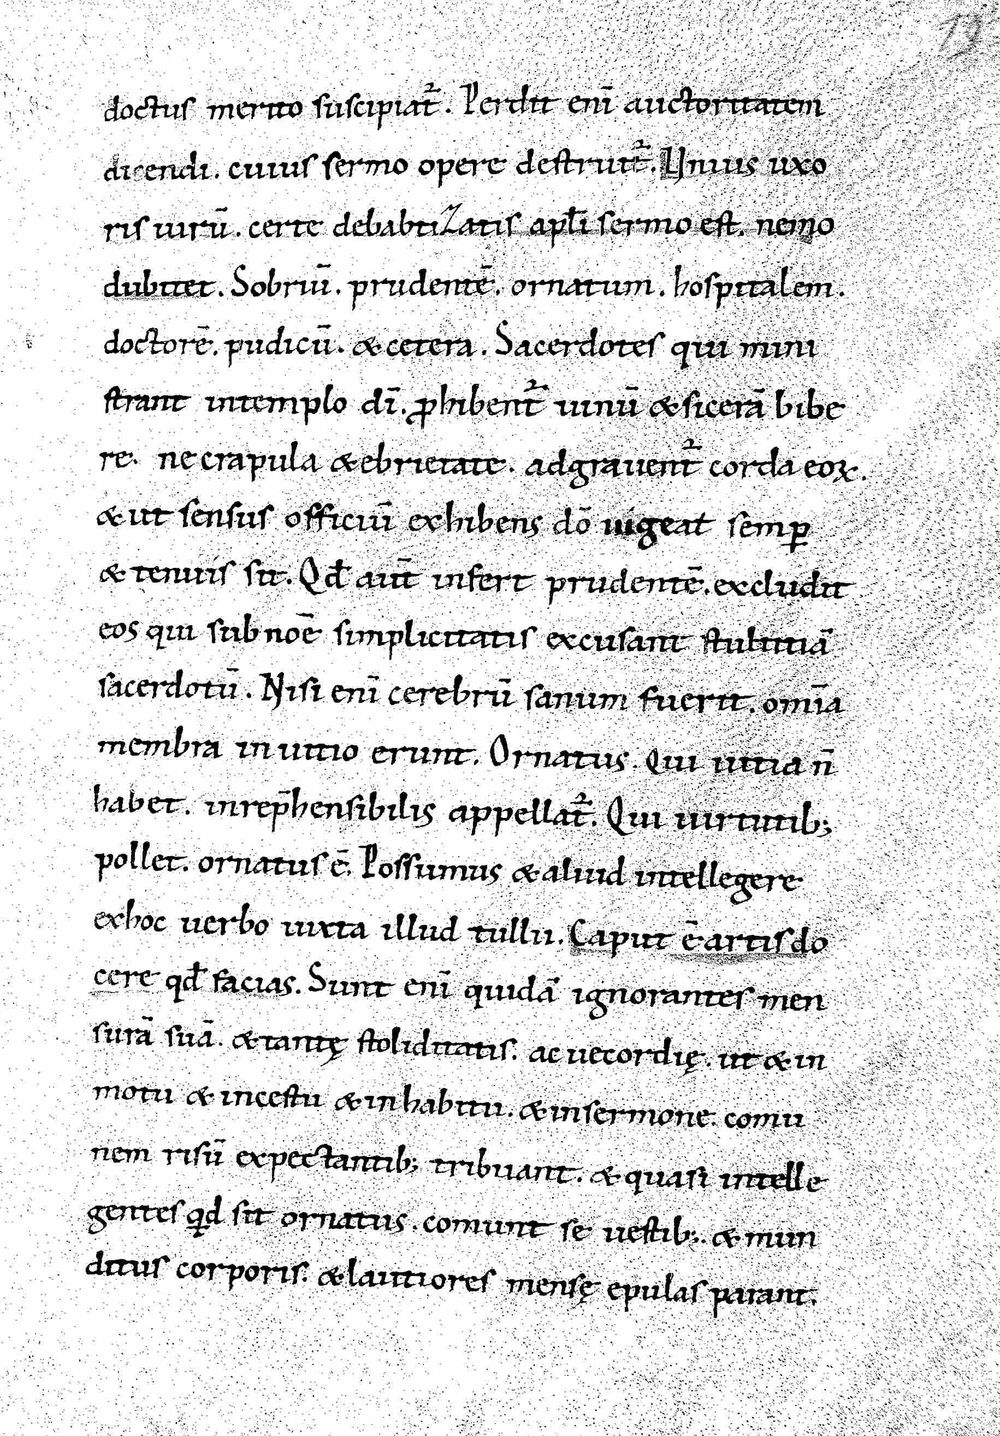 19
doctus merito suscipiat᷑. Perdit enī auctoritatem
dicendi. cuius sermo opere destruit᷑. Unius uxo
ris uirū. certe debabtizatis apłi sermo est. nemo
dubitet. Sobriū. prudentē. ornatum. hospitalem.
doctorē. pudicū. & cetera. Sacerdotes qui mini
strant intemplo dī. ꝓhibent᷑ uinū & sicerā bibe
re. ne crapula & ebrietate. adgrauent᷑ corda eoꝝ.
& ut sensus officiū exhibens dō uigeat semꝑ
& tenuis sit. Qđ aut̄ infert prudentē. excludit
eos qui sub noē simplicitatis excusant stultitiā
sacerdotū. Nisi enī cerebrū sanum fuerit. omīa
membra inuitio erunt. Ornatus. Qui uitia n̄
habet. inrep̄hensibilis appellat᷑. Qui uirtutib;
pollet. ornatus ē. Possumus & aliud intellegere
exhoc uerbo iuxta illud tullii. Caput ē artis do
cere qđ facias. Sunt enī quidā ignorantes men
surā suā. & tantę stoliditatis. ac uecordię. ut & in
motu & incestu & inhabitu. & insermone. comu
nem risū expectantib; tribuant. & quasi intelle
gentes qd sit ornatus. comunt se uestib;. & mun
ditus corporis. & lautiores mensę epulas parant.